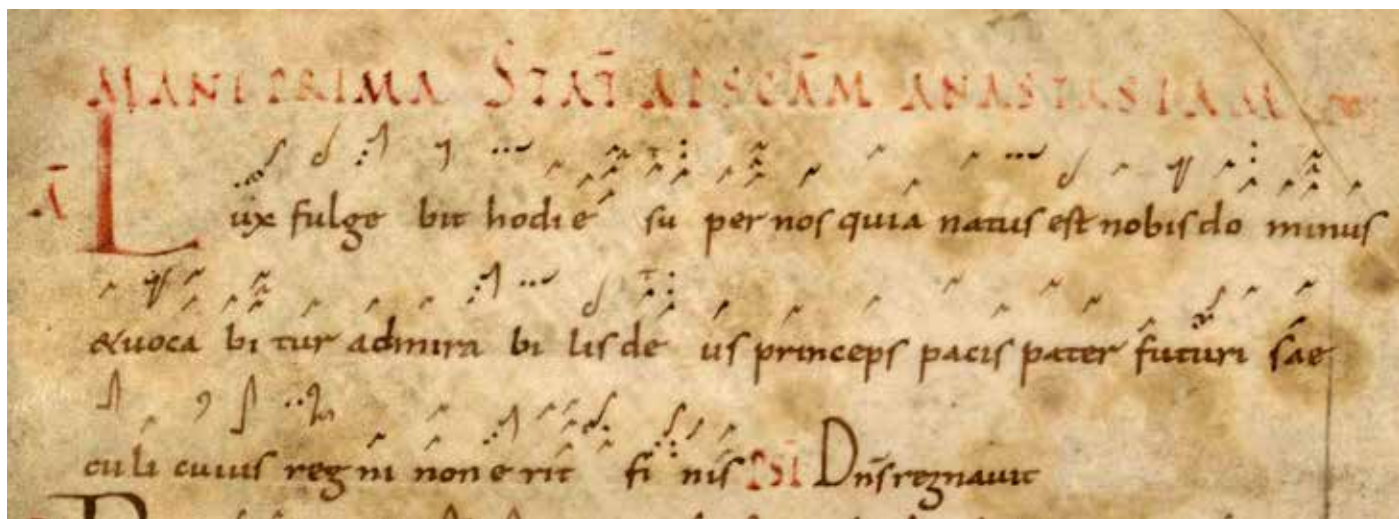 MANE PRIMA STAT̄ AD SCĀM ANASTASIAM
Ā Lux fulge bit hodie su per nos quia natus est nobis do minus
&uoca bi tur admira bi lis de us princeps pacis pater futuri sae
culi cuius reg ni non e rit fi nis PSI Dn̄s regnauit